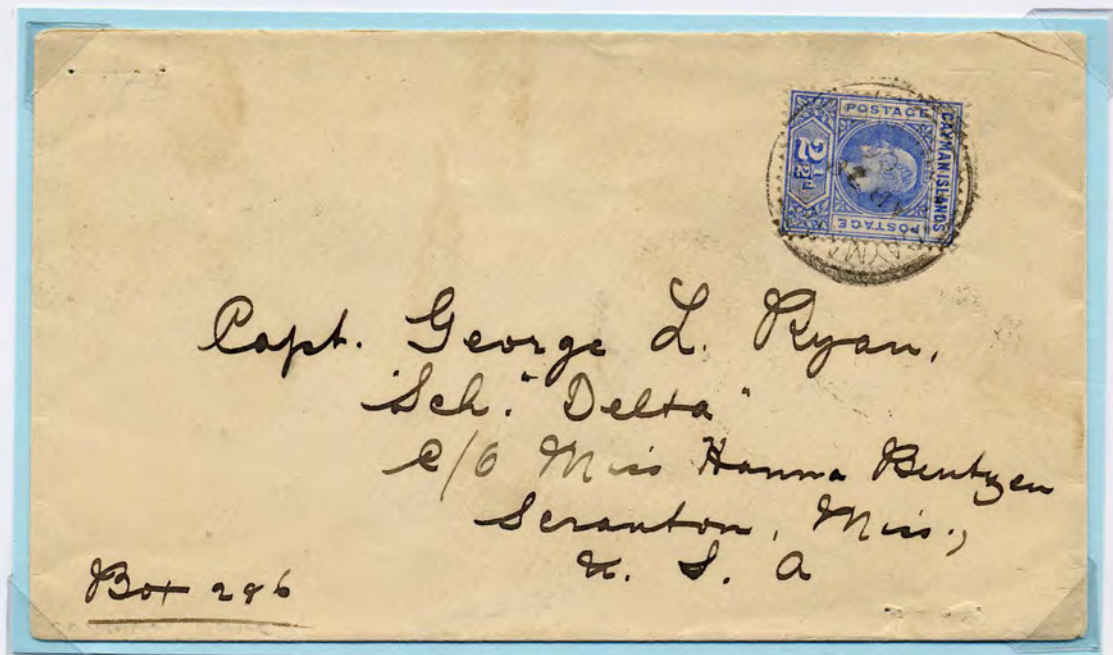 POSTAGE
CAYMAN ISLANDS
2½d
POSTAGE
Capt. George L. Ryan,
Sch. "Delta"
c/o Miss Hanna Bentzen
Scranton, Miss.,
U. S. A
Box 286